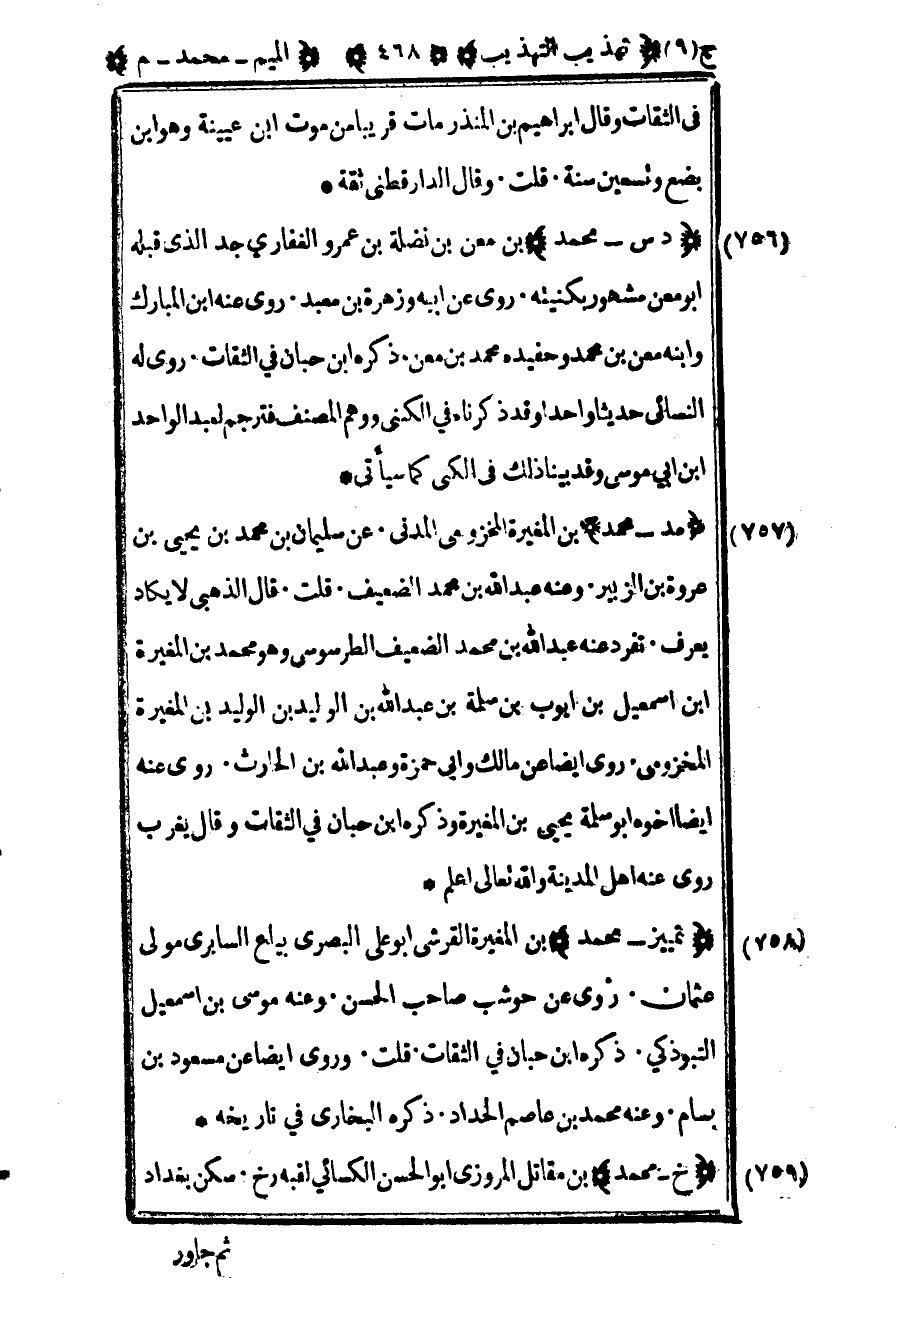 ج(٩) ﴿ تهذيب التهذيب ﴾ ﴿ ٤٦٨ ﴾ ﴿ الميم ـ محمد ـ م ﴾
فى الثقات وقال ابراهيم بن المنذر مات قريبا من موت ابن عيينة وهو ابن
بضع وتسعين سنة · قلت · وقال الدارقطنى ثقة *
(٧٥٦) ﴿ د س ـ محمد ﴾ بن معن بن نضلة بن عمرو الغفاري جد الذى قبله
ابو معن مشهور بكنيته · روى عن ابيه وزهرة بن معبد · روى عنه ابن المبارك
وابنه معن بن محمد وحفيده محمد بن معن · ذكره ابن حبان في الثقات · روى له
النسائى حديثا واحدا وقد ذكرناه في الكنى ووهم المصنف فترجم لعبد الواحد
ابن ابي موسى وقد بينا ذلك فى الكنى كما سيأتى *
(٧٥٧) ﴿ مد ـ محمد ﴾ بن المغيرة المخزومى المدنى · عن سليمان بن محمد بن يحيى بن
عروة بن الزبير · وعنه عبد الله بن محمد الضعيف · قلت · قال الذهبي لا يكاد
يعرف · تفرد عنه عبد الله بن محمد الضعيف الطرسوسى وهو محمد بن المغيرة
ابن اسمعيل بن ايوب بن سلمة بن عبد الله بن الوليد بن الوليد بن المغيرة
المخزومى · روى ايضا عن مالك وابي حمزة وعبد الله بن الحارث · روى عنه
ايضا اخوه ابو سلمة يحيى بن المغيرة وذكره ابن حبان في الثقات وقال يغرب
روى عنه اهل المدينة والله تعالى اعلم *
(٧٥٨) ﴿ تمييز ـ محمد ﴾ بن المغيرة القرشى ابو على البصرى بياع السابرى مولى
عثمان · روى عن حوشب صاحب الحسن · وعنه موسى بن اسمعيل
التبوذكي · ذكره ابن حبان في الثقات · قلت · وروى ايضا عن مسعود بن
بسام · وعنه محمد بن عاصم الحداد · ذكره البخارى في تاريخه *
(٧٥٩) ﴿ خ ـ محمد ﴾ بن مقاتل المروزى ابو الحسن الكسائي لقبه رخ · سكن بغداد
ثم جاور